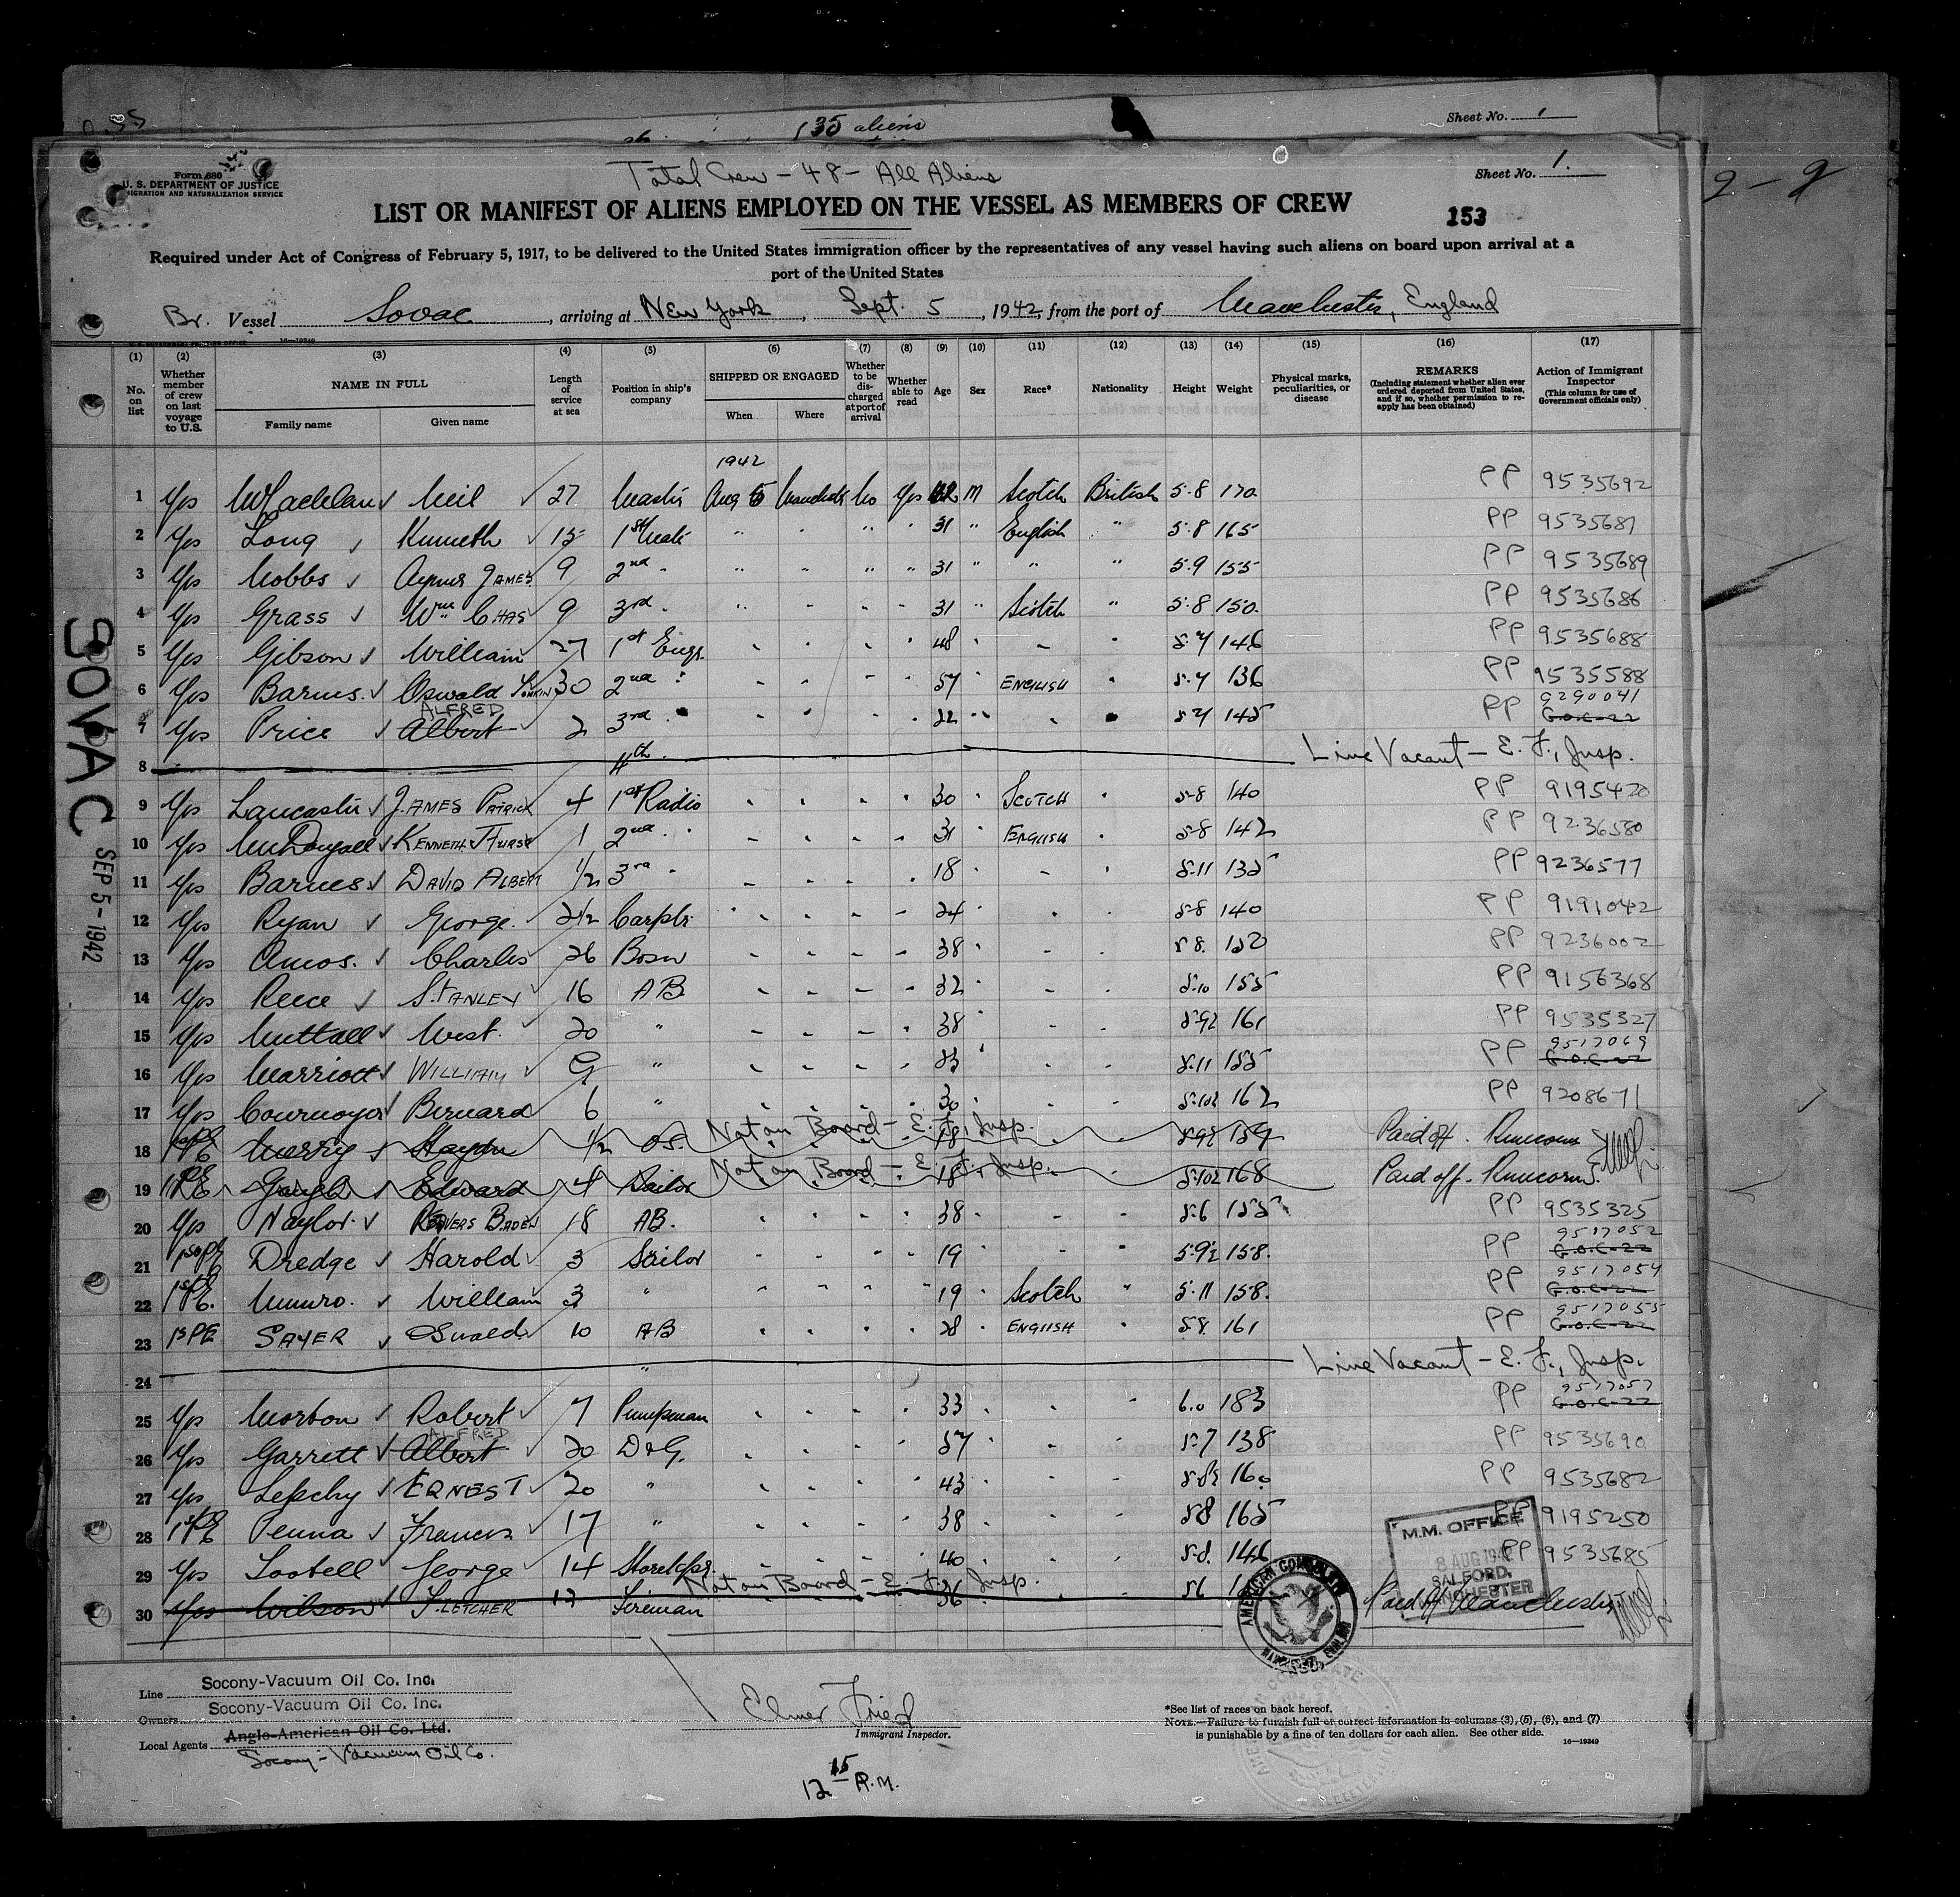 135 aliens
Sheet No. 1
Form 680
U. S. DEPARTMENT OF JUSTICE
IMMIGRATION AND NATURALIZATION SERVICE
Total Crew - 48 - All Aliens
Sheet No. 1.
LIST OR MANIFEST OF ALIENS EMPLOYED ON THE VESSEL AS MEMBERS OF CREW
153
Required under Act of Congress of February 5, 1917, to be delivered to the United States immigration officer by the representatives of any vessel having such aliens on board upon arrival at a
port of the United States
Br. Vessel Sovac, arriving at New York, Sept. 5, 1942, from the port of Manchester, England
16—19349
(1) (2) (3) (4) (5) (6) (7) (8) (9) (10) (11) (12) (13) (14) (15) (16) (17)
No. on list
Whether member of crew on last voyage to U.S.
NAME IN FULL
Family name
Given name
Length of service at sea
Position in ship's company
SHIPPED OR ENGAGED
When
Where
Whether to be discharged at port of arrival
Whether able to read
Age
Sex
Race*
Nationality
Height
Weight
Physical marks, peculiarities, or disease
REMARKS
(Including statement whether alien ever ordered deported from United States, and if so, whether permission to reapply has been obtained)
Action of Immigrant Inspector
(This column for use of Government officials only)
1942
1 Yes McLachlan Neil 27 Master Aug 5 Manchester No Yes M Scotch British 5-8 170 PP 9535692
2 Yes Long Kenneth 15 1st Mate " " " 31 " English " 5-8 165 PP 9535687
3 Yes Hobbs JAMES 9 2nd " " " " " 31 " " " 5-9 155 PP 9535689
4 Yes Grass Wm CHAS 9 3rd " " " " " 31 " Scotch " 5-8 150 PP 9535686
5 Yes Gibson William 27 1st Engr. " " " " 48 " " " 5-7 146 PP 9535688
6 Yes Barnes Oswald TONKIN 30 2nd " " " " " 57 " ENGLISH " 5-7 136 PP 9535588
ALFRED 9290041
7 Yes Price Albert 2 3rd " " " " " 22 " " " 5-7 145 PP G.O.C-22
8 4th Line Vacant - E. F., Insp.
9 Yes Lancaster JAMES PATRICK 4 1st Radio " " " " 30 " SCOTCH " 5-8 140 PP 9195420
10 Yes McDougall KENNETH HURST 1 2nd " " " " " 31 " ENGLISH " 5-8 142 PP 9236580
11 Yes Barnes DAVID ALBERT 1/2 3rd " " " " " 18 " " " 5-11 135 PP 9236577
12 Yes Ryan George 2 1/2 Carptr. " " " " 24 " " 5-8 140 PP 9191042
13 Yes Amos. Charles 26 Bosn " " " " 38 " " " 5 8. 150 PP 9236002
14 Yes Reece STANLEY 16 AB " " " " 32 " " " 5-10 155 PP 9156368
15 Yes Nuttall West. 20 " " " " " 38 " " " 5-9½ 161 PP 9535327
9517069
16 Yes Marriott WILLIAM 9 " " " " " " " " 5-11 155 PP G.O.C-22
17 Yes Cournoyer Bernard 6 " " " " " 30 " " " 5-10½ 162 PP 9208671
Not on Board - E. F., Insp.
18 Merry Haydn 1/2 OS. 18 5-9½ 159 Paid off. Runcorn
Not on Board - E. F., Insp.
19 Gough Edward 4 Sailor 18 5-10½ 168 Paid off. Runcorn.
20 Yes Naylor BADEN 18 AB. " " " " 38 " " " 5-6 155 PP 9535325
9517052
21 Dredge Harold 3 Sailor " " " " 19 " " " 5-9½ 158. PP G.O.C-22
9517054
22 Munro. William 3 " " " " " 19 " Scotch " 5-11 158. PP G.O.C-22
9517055
23 1st PE SAYER Oswald 10 AB " " " " 28 " ENGLISH " 5 8. 161 PP G.O.C-22
24 " Line Vacant - E. F., Insp.
9517057
25 Yes Morton Robert 7 Pumpman " " " " 33 " " " 6.0 183 PP G.O.C-22
ALFRED
26 Yes Garrett Albert 20 D&G. " " " 57 " " " 5-7 138 PP 9535690
27 Yes Lepchy ERNEST 20 " " " " " 43 " " " 5-8½ 160 PP 9535682
28 Penna Francis 17 " " " " " 38 " " " 5 8 165 PP 9195250
29 Yes Lovtell George 14 Storekpr. " " " " 40 " " " 5-8. 146 PP 9535685
Not on Board - E. F., Insp.
30 Yes Wilson FLETCHER 17 Fireman 36 5 6 Paid off Manchester
SOVAC SEP 5-1942
M.M. OFFICE
8 AUG 1942
SALFORD,
MANCHESTER
AMERICAN CONSULATE
MANCHESTER, ENGLAND
Line Socony-Vacuum Oil Co. Inc.
Owners Socony-Vacuum Oil Co. Inc.
Local Agents Anglo-American Oil Co. Ltd.
Socony-Vacuum Oil Co.
Elmer Fried
Immigrant Inspector.
12 15 P.M.
*See list of races on back hereof.
NOTE.—Failure to furnish full or correct information in columns (3), (5), (6), and (7)
is punishable by a fine of ten dollars for each alien. See other side.
16—19349